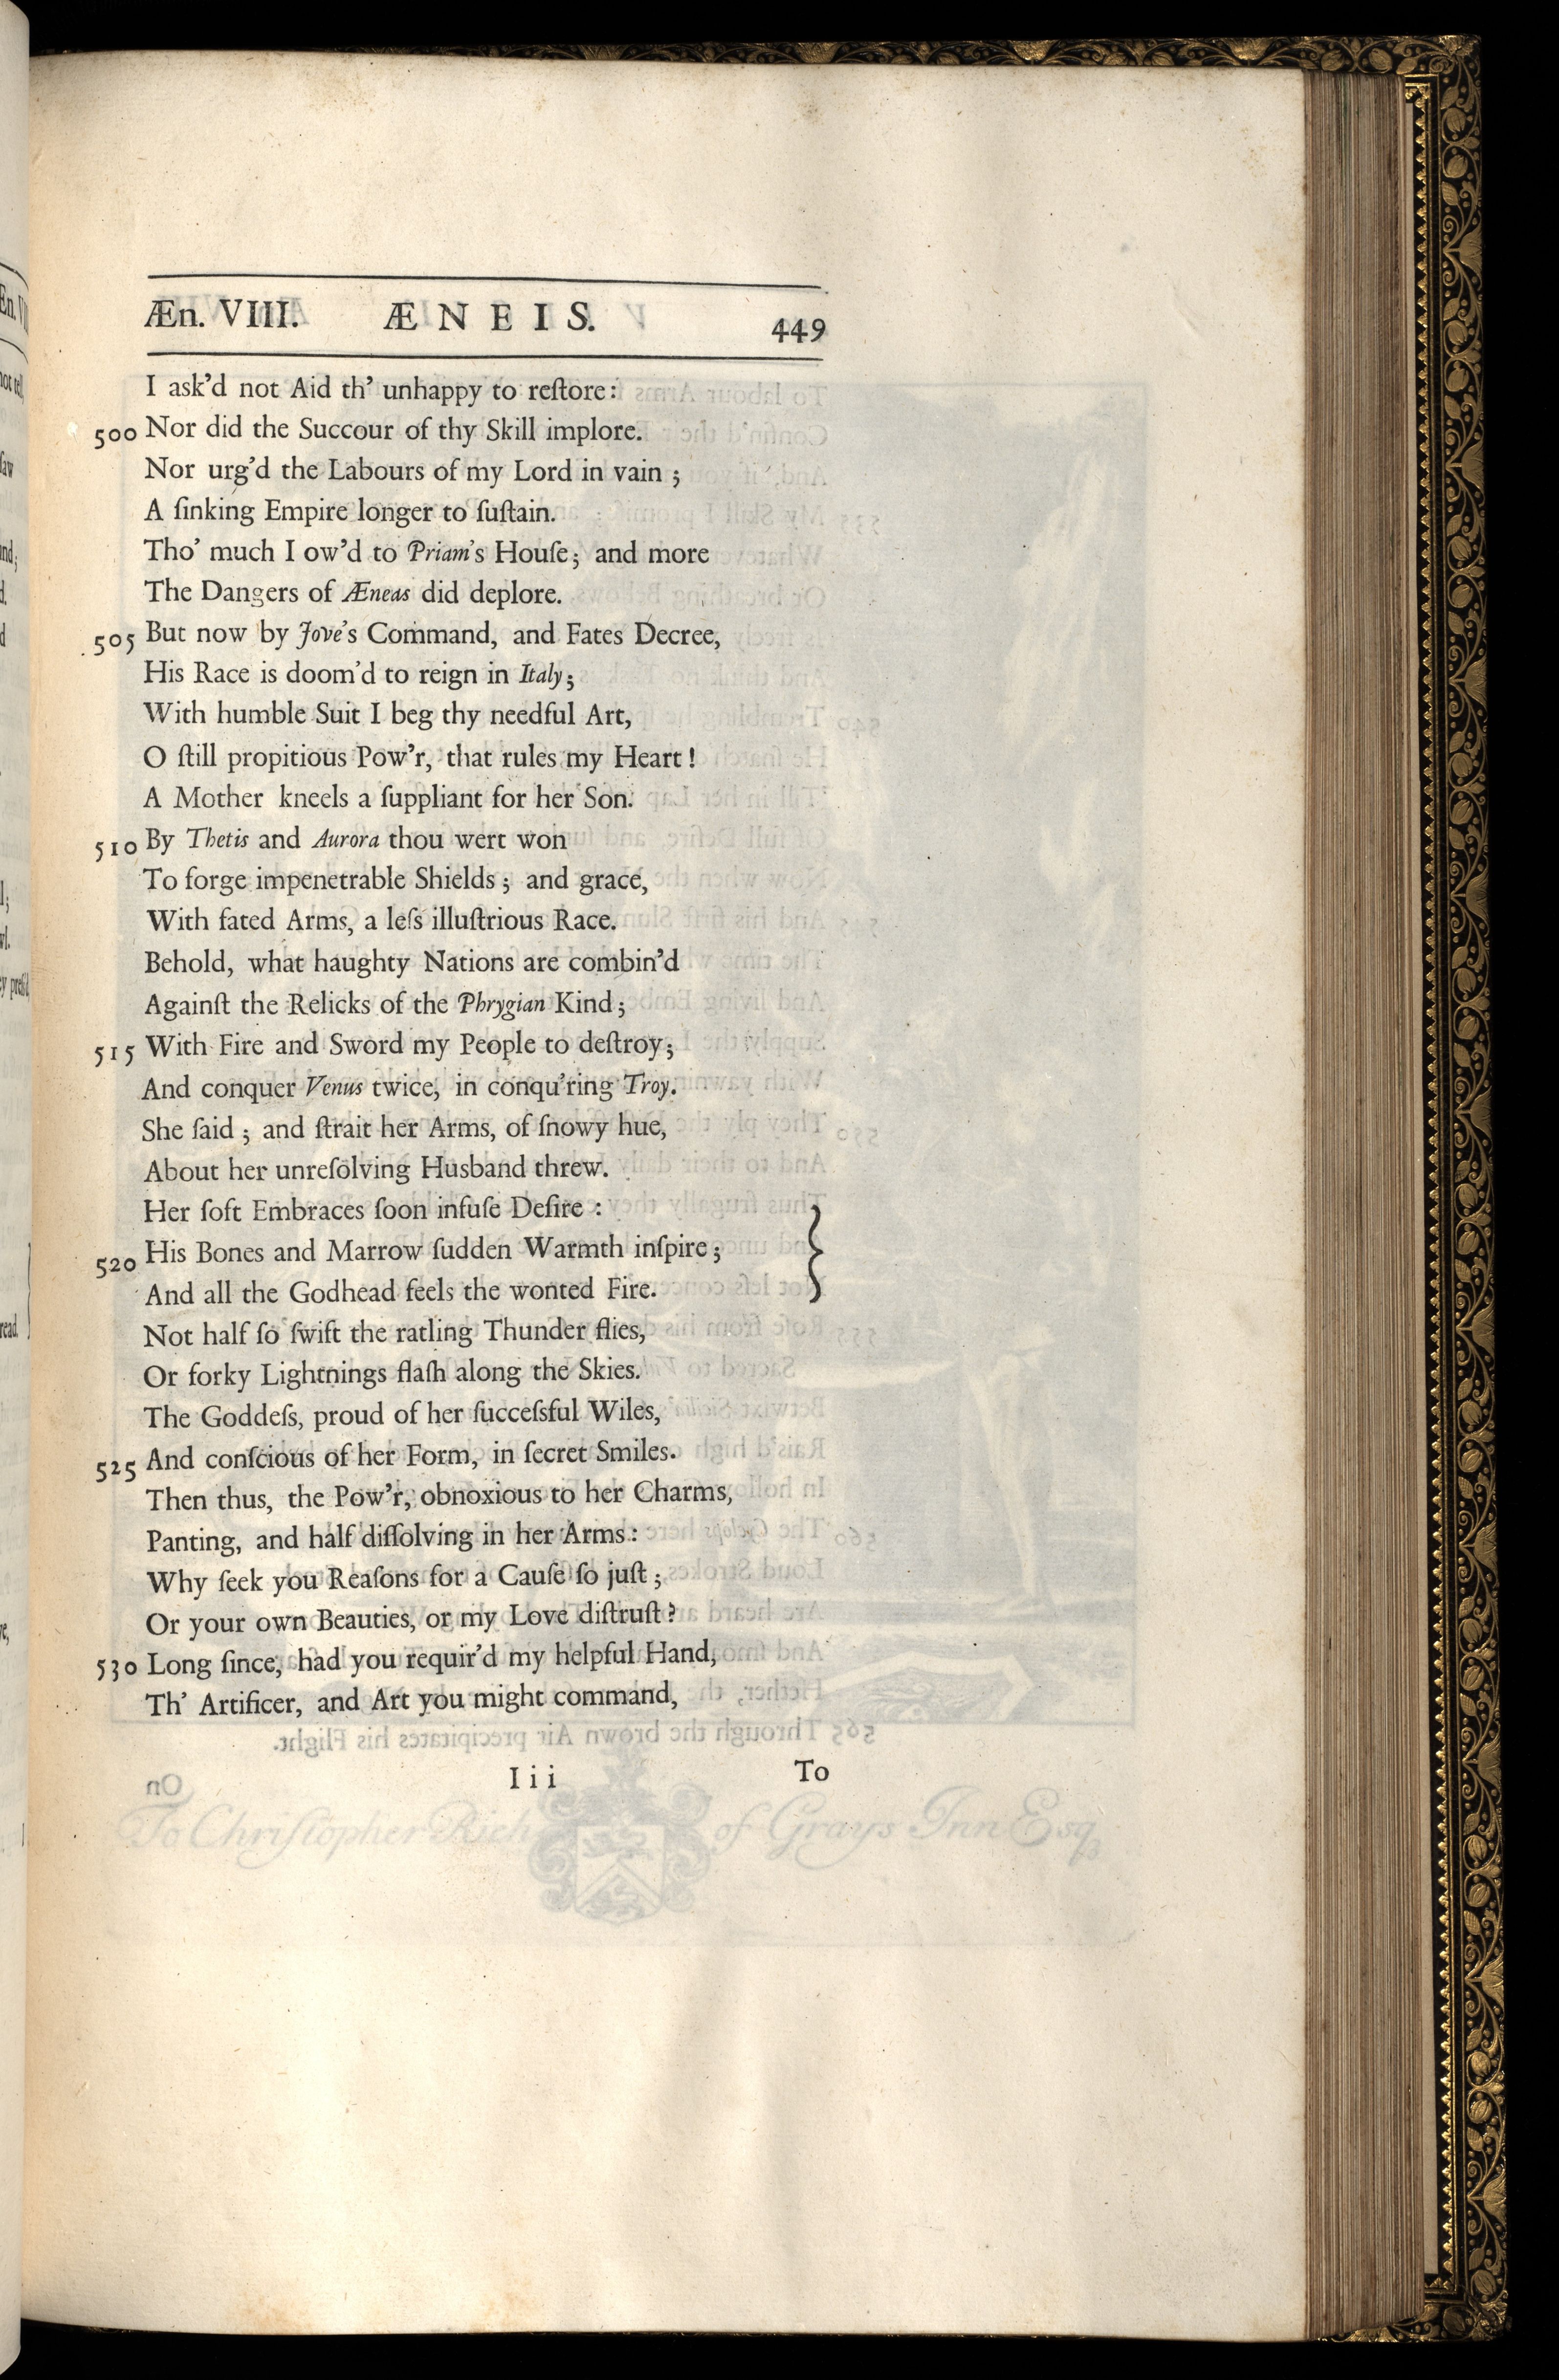 Æn. VIII. ÆNEIS. 449
I ask'd not Aid th' unhappy to reſtore:
500 Nor did the Succour of thy Skill implore.
Nor urg'd the Labours of my Lord in vain;
A ſinking Empire longer to ſuſtain.
Tho' much I ow'd to Priam's Houſe; and more
The Dangers of Æneas did deplore.
505 But now by Jove's Command, and Fates Decree,
His Race is doom'd to reign in Italy;
With humble Suit I beg thy needful Art,
O ſtill propitious Pow'r, that rules my Heart!
A Mother kneels a ſuppliant for her Son.
510 By Thetis and Aurora thou wert won
To forge impenetrable Shields; and grace,
With fated Arms, a leſs illuſtrious Race.
Behold, what haughty Nations are combin'd
Againſt the Relicks of the Phrygian Kind;
515 With Fire and Sword my People to deſtroy;
And conquer Venus twice, in conqu'ring Troy.
She ſaid; and ſtrait her Arms, of ſnowy hue,
About her unreſolving Husband threw.
Her ſoft Embraces ſoon infuſe Deſire:
520 His Bones and Marrow ſudden Warmth inſpire;
And all the Godhead feels the wonted Fire.
Not half ſo ſwift the ratling Thunder flies,
Or forky Lightnings flaſh along the Skies.
The Goddeſs, proud of her ſucceſsful Wiles,
525 And conſcious of her Form, in ſecret Smiles.
Then thus, the Pow'r, obnoxious to her Charms,
Panting, and half diſſolving in her Arms:
Why ſeek you Reaſons for a Cauſe ſo juſt;
Or your own Beauties, or my Love diſtruſt?
530 Long ſince, had you requir'd my helpful Hand,
Th' Artificer, and Art you might command,
Iii To
To Chriſtopher Rich of Grays Inn Esq